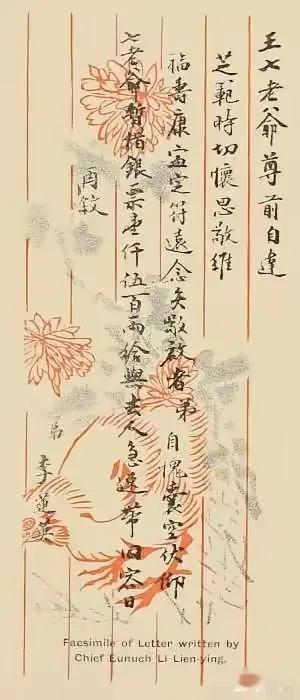 王七老爺尊前自違
芝範時切懷思敬維
福壽康寧定符遠念矣敬啟者弟自愧囊空伏仰
七老爺暫措銀票壹仟伍百兩給與去人急速帶回容日
再敘
弟 李蓮英
Facsimile of Letter written by
Chief Eunuch Li Lien-ying.